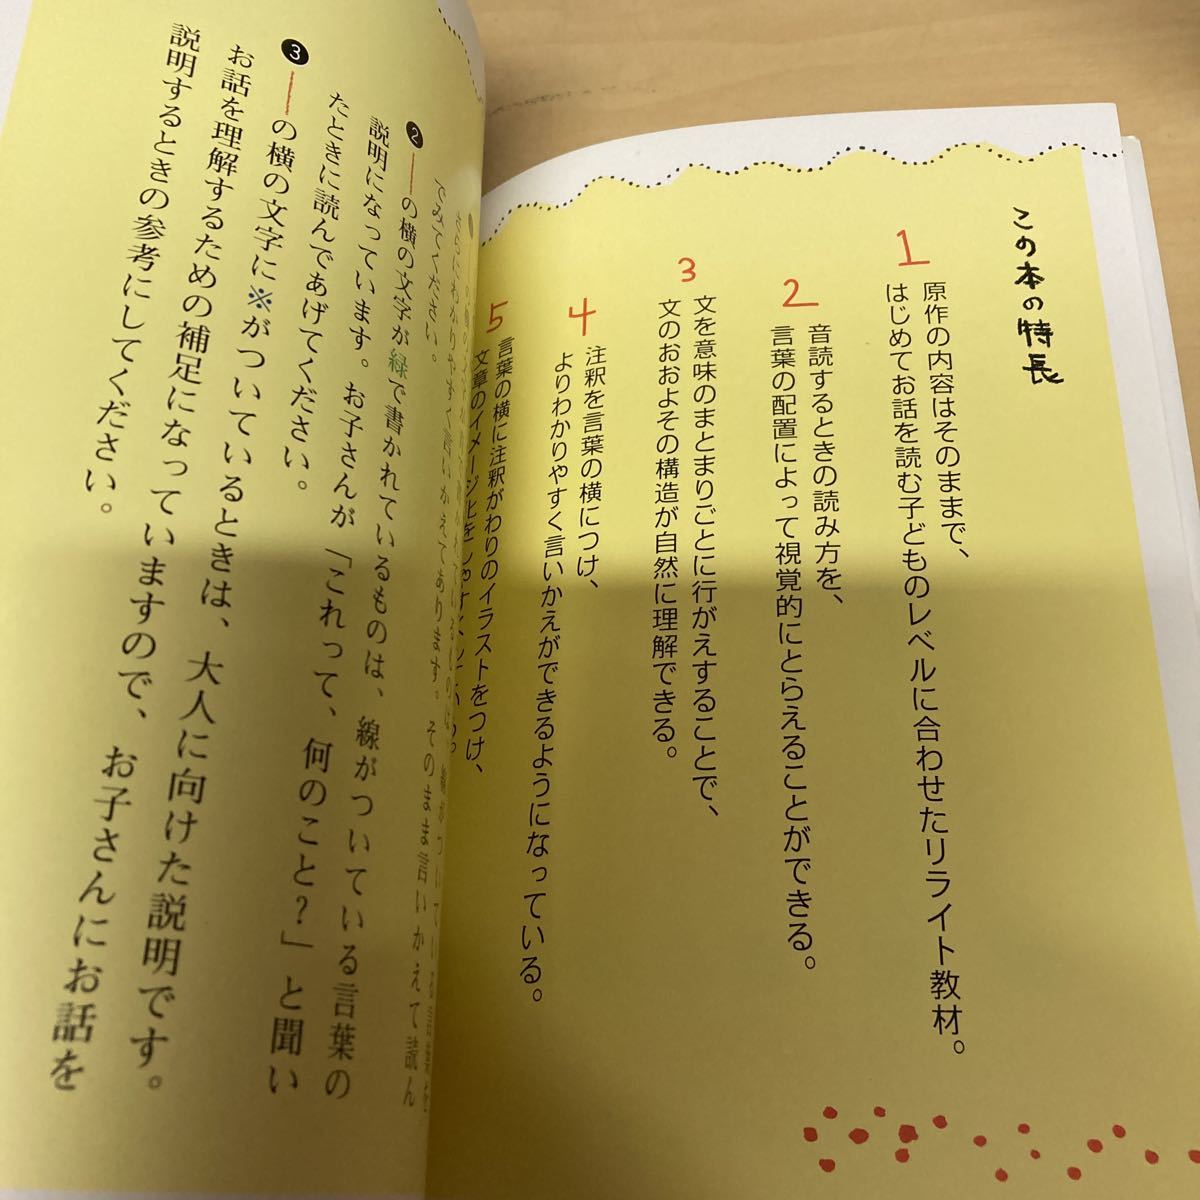 この本の特長
1
原作の内容はそのままで、
はじめてお話を読む子どものレベルに合わせたリライト教材。
2
音読するときの読み方を、
言葉の配置によって視覚的にとらえることができる。
3
文を意味のまとまりごとに行がえすることで、
文のおおよその構造が自然に理解できる。
4
注釈を言葉の横につけ、
よりわかりやすく言いかえができるようになっている。
5
言葉の横に注釈がわりのイラストをつけ、
文章のイメージ化をしやすく
さらにわかりやすく言いかえてあります。そのまま言いかえて読ん
でみてください。
❷――の横の文字が緑で書かれているものは、線がついている言葉の
説明になっています。お子さんが「これって、何のこと?」と聞い
たときに読んであげてください。
❸――の横の文字に※がついているときは、大人に向けた説明です。
お話を理解するための補足になっていますので、お子さんにお話を
説明するときの参考にしてください。